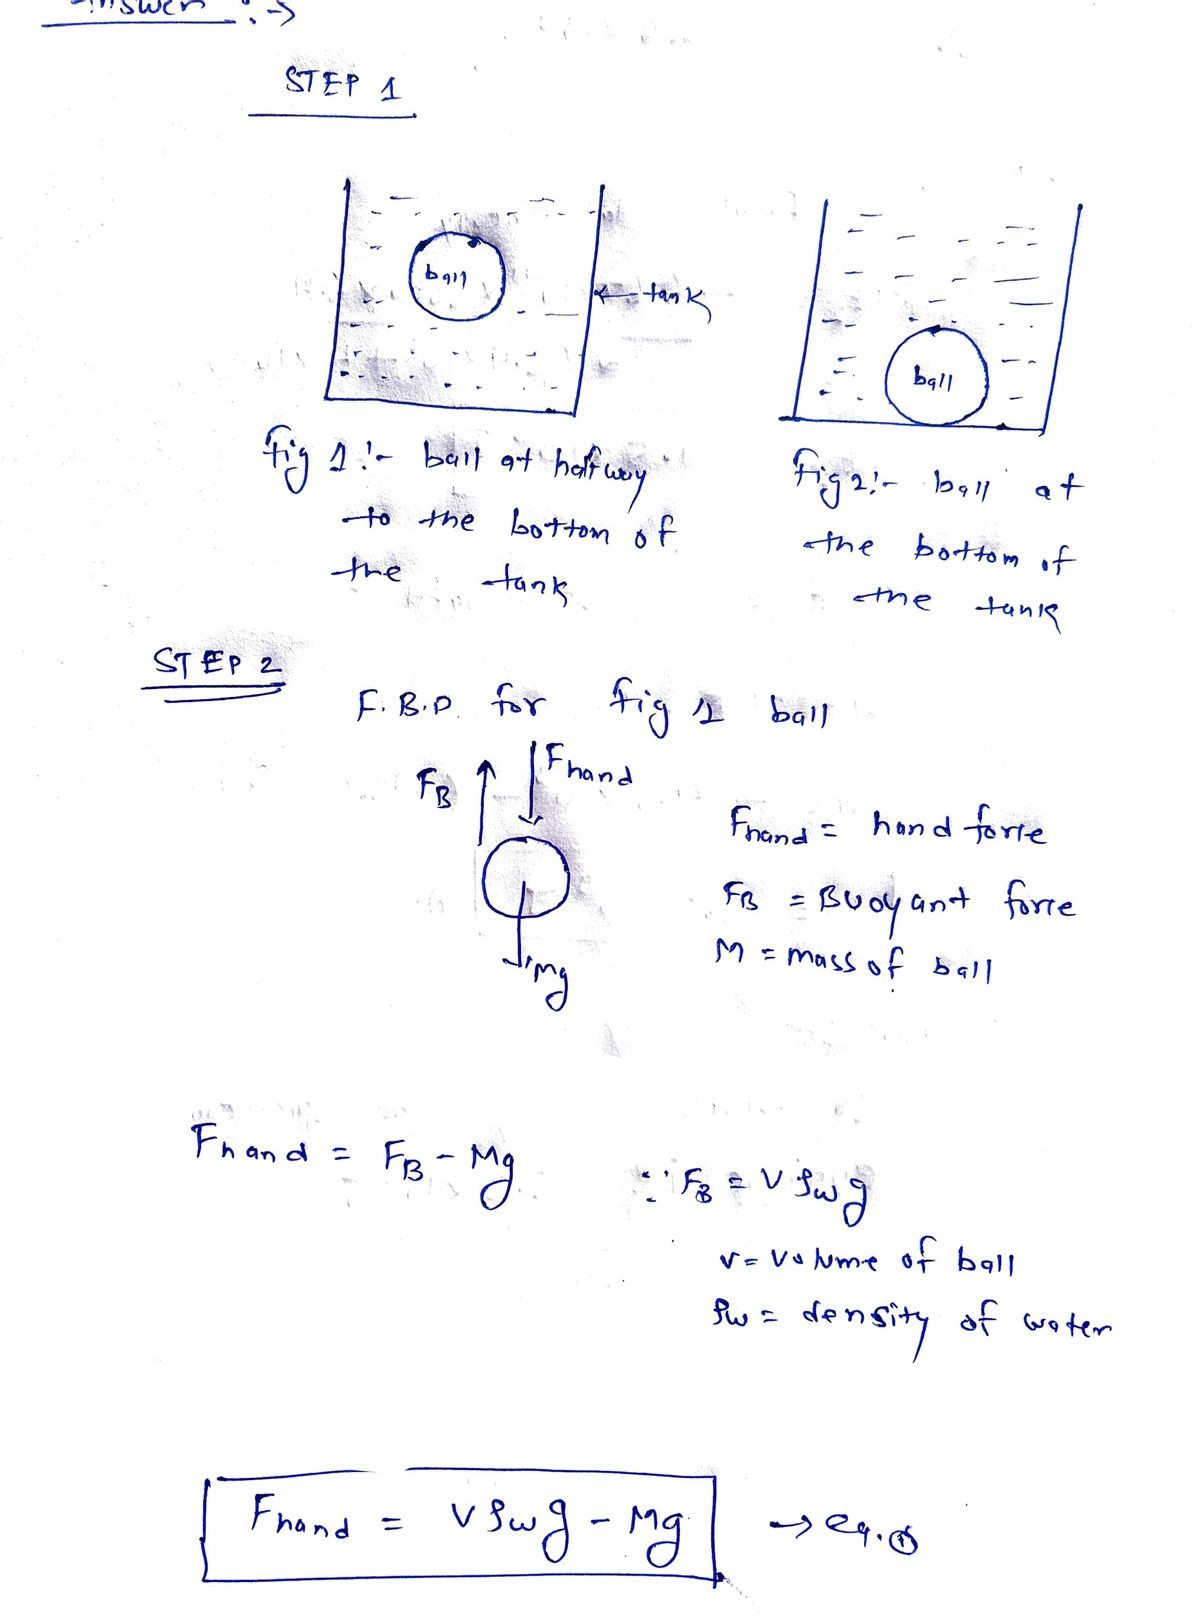 Answer :→
STEP 1
ball
← tank
ball
fig 1:- ball at halfway
to the bottom of
the tank
fig 2:- ball at
the bottom of
the tank
STEP 2
F.B.D. for fig 1 ball
FB
Fhand
Mg
Fhand = hand force
FB = Buoyant force
M = mass of ball
Fhand = FB - Mg
∵ FB = V ρw g
V = Volume of ball
ρw = density of water
Fhand = V ρw g - Mg → eq. ①